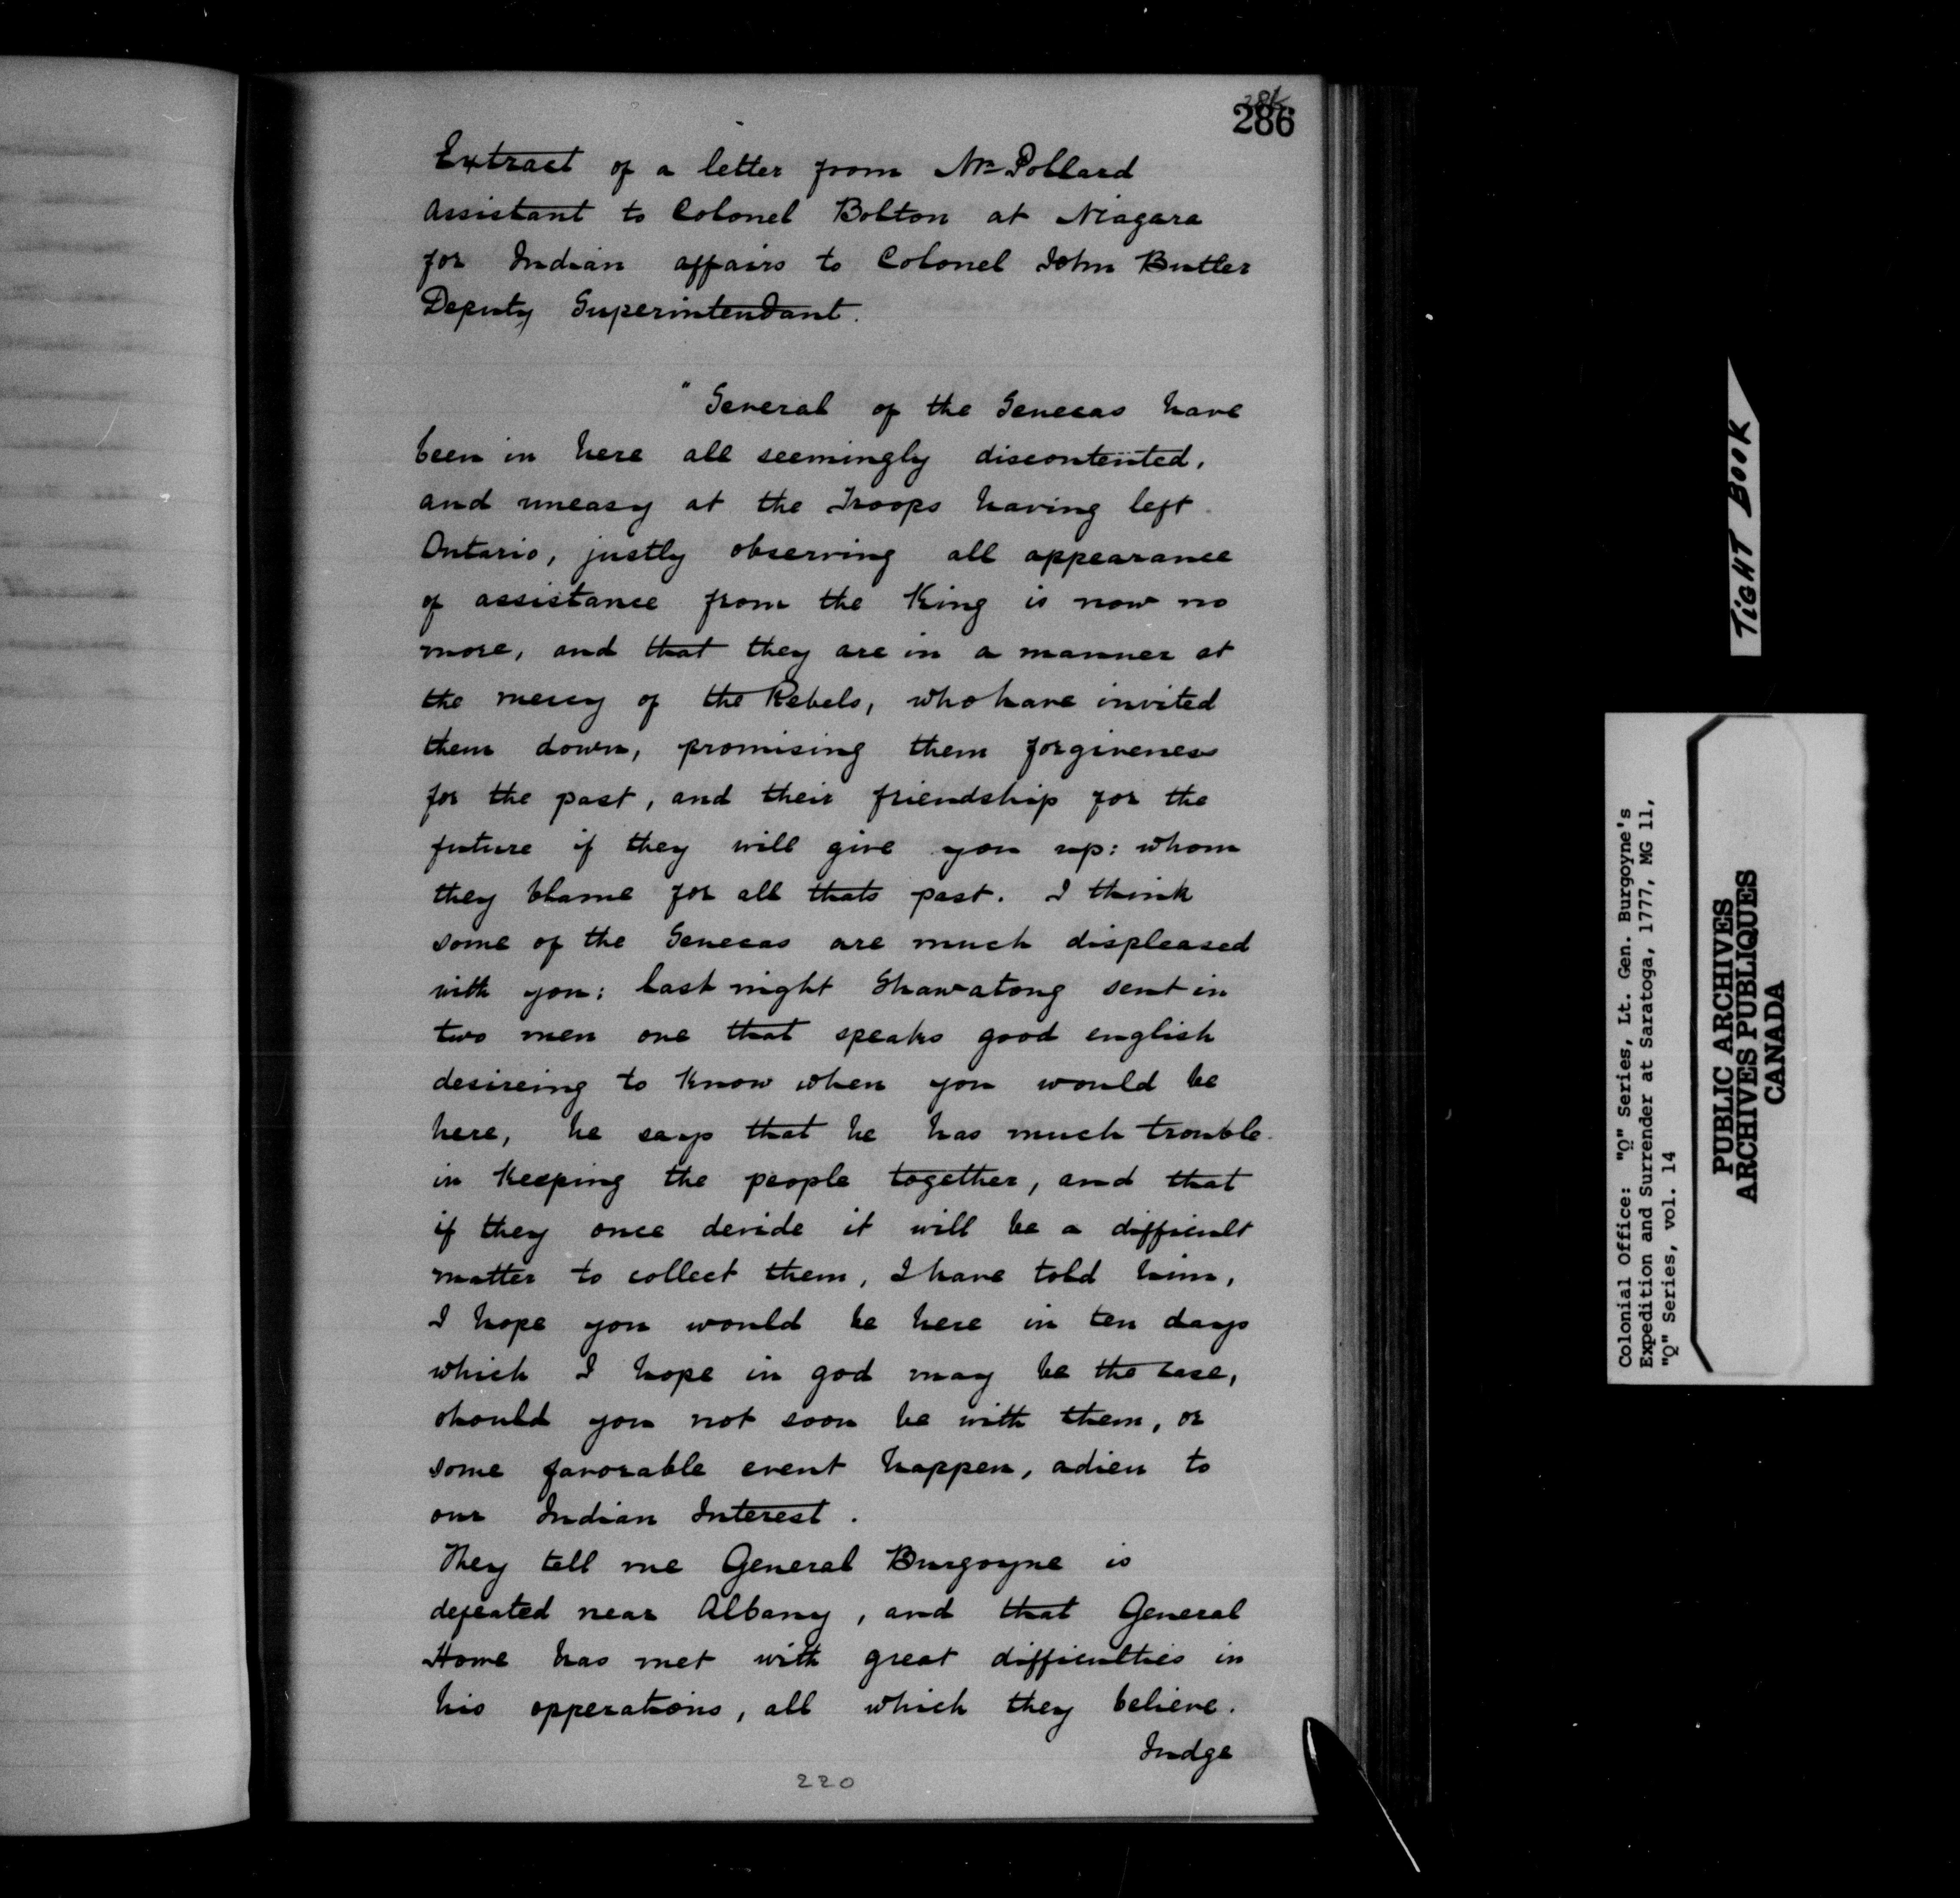 286
Extract of a letter from Mr Pollard
Assistant to Colonel Bolton at Niagara
for Indian affairs to Colonel John Butler
Deputy Superintendant.
"Several of the Senecas have
been in here all seemingly discontented,
and uneasy at the Troops having left
Ontario, justly observing all appearance
of assistance from the King is now no
more, and that they are in a manner at
the mercy of the Rebels, who have invited
them down, promising them forgiveness
for the past, and their friendship for the
future if they will give you up: whom
they blame for all thats past. I think
some of the Senecas are much displeased
with you: last night Shawatong sent in
two men one that speaks good english
desireing to know when you would be
here, he says that he has much trouble
in keeping the people together, and that
if they once devide it will be a difficult
matter to collect them, I have told him,
I hope you would be here in ten days
which I hope in god may be the case,
should you not soon be with them, or
some favorable event happen, adieu to
our Indian Interest.
They tell me General Burgoyne is
defeated near Albany, and that General
Howe has met with great difficulties in
his opperations, all which they believe.
Judge
220
TiGHT BOOK
Colonial Office: "Q" Series, Lt. Gen. Burgoyne's
Expedition and Surrender at Saratoga, 1777, MG 11,
"Q" Series, vol. 14
PUBLIC ARCHIVES
ARCHIVES PUBLIQUES
CANADA